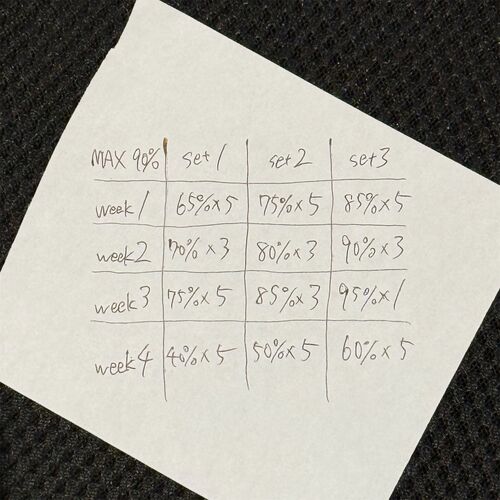 MAX 90% set 1 set 2 set 3
week 1 65%×5 75%×5 85%×5
week 2 70%×3 80%×3 90%×3
week 3 75%×5 85%×3 95%×1
week 4 40%×5 50%×5 60%×5